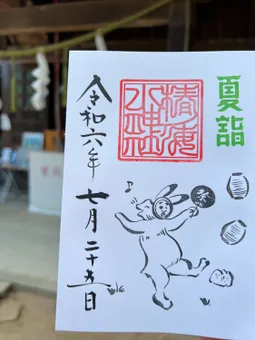 夏詣
椿海
水神社
祭
令和六年
七月二十五日